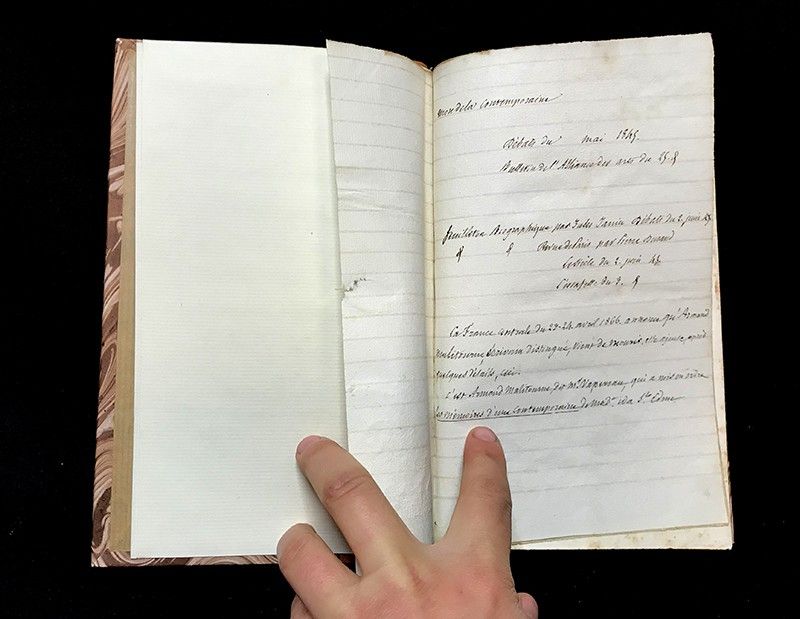 de la Contemporaine
Débats du mai 1845
Bulletin de l'Alliance des arts du 25 &
feuilleton Biographique par Jules Janin Débats du 2 juin 45
& & Revue de Paris par Pierre Durand
Le Siècle du 2. juin 45
du 3. &
La France centrale du 23-24. avril 1866. annonce qu'Armand
Malitourne, écrivain distingué, vient de mourir. elle ajoute, après
quelques détails, ceci:
C'est Armand Malitourne, dit Mr. Vapereau, qui a mis en ordre
les Mémoires d'une Contemporaine de Made. Ida St. Edme